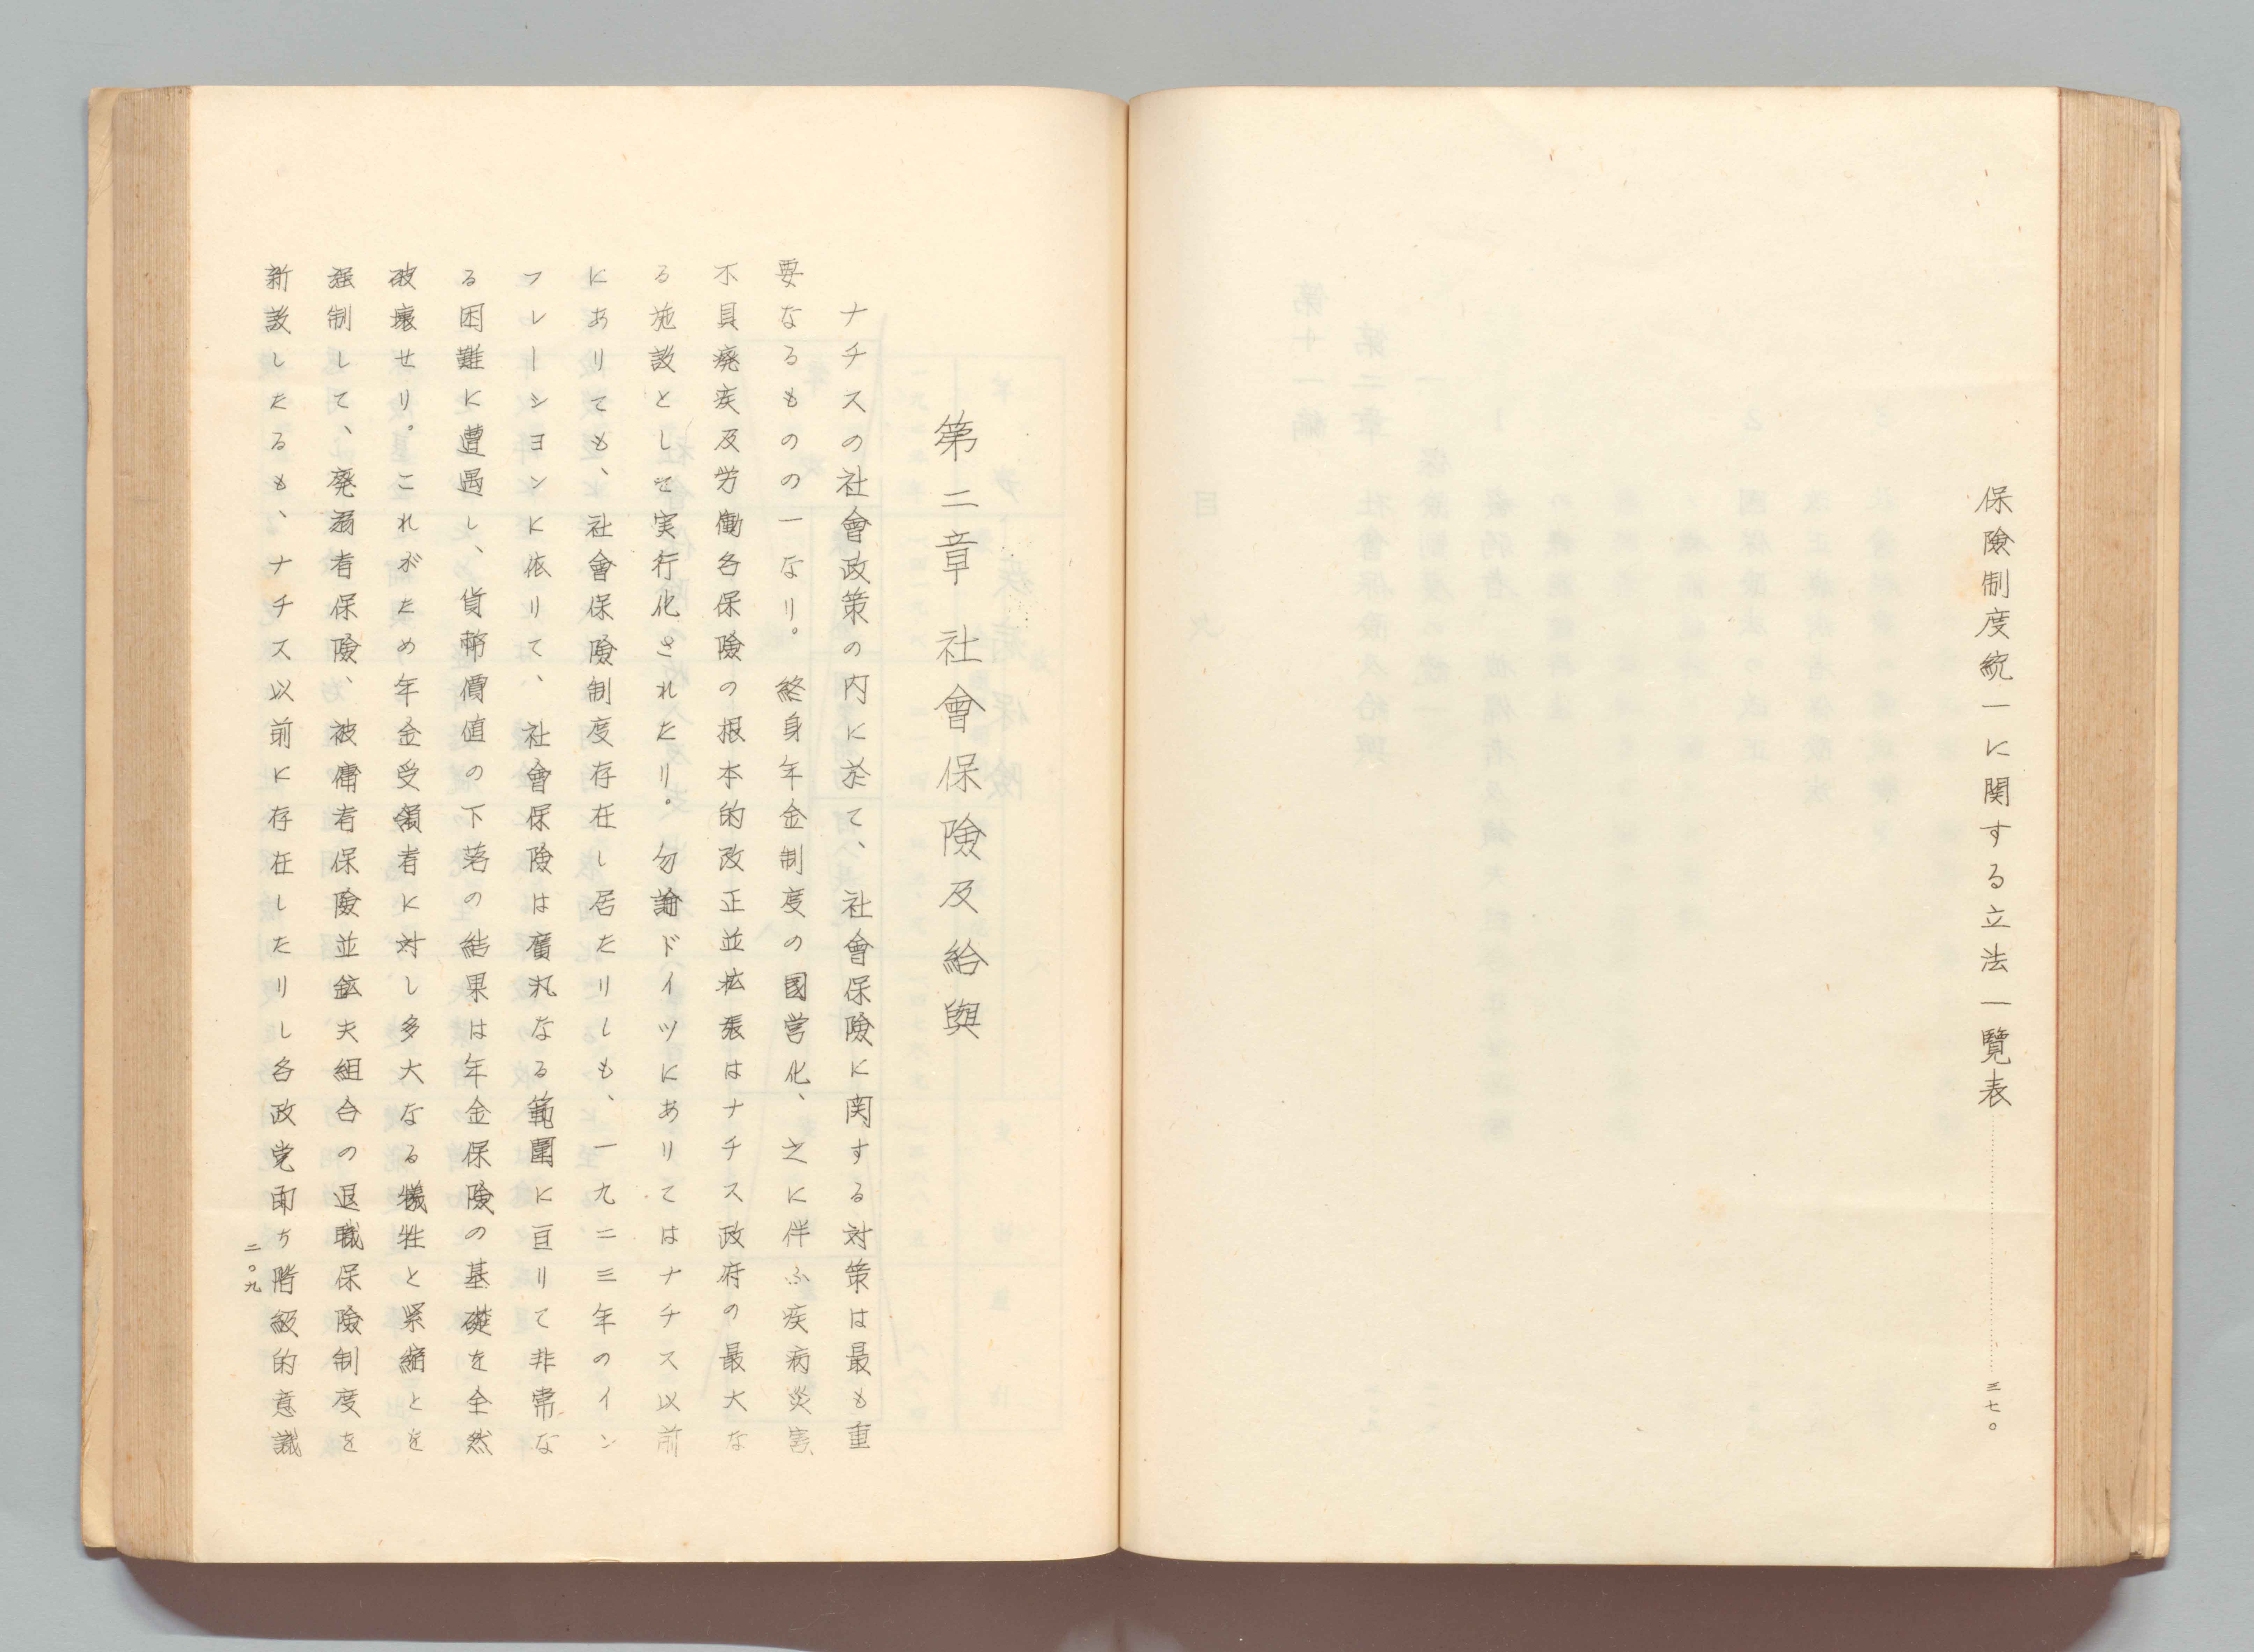 保險制度統一に関する立法一覽表……………………三七〇
第二章　社會保險及給與
ナチスの社會政策の内に於て、社會保險に関する対策は最も重
要なるものの一なり。終身年金制度の國営化、之に伴ふ疾病災害
不具廃疾及労働各保險の根本的改正並拡張はナチス政府の最大な
る施設として実行化されたり。勿論ドイツにありてはナチス以前
にありても、社會保險制度存在し居たりしも、一九二三年のイン
フレーシヨンに依りて、社會保險は廣汎なる範圍に亘りて非常な
る困難に遭遇し、貨幣價値の下落の結果は年金保險の基礎を全然
破壞せり。これがため年金受領者に対し多大なる犠牲と緊縮とを
强制して、廃溺者保險、被傭者保險並鉱夫組合の退職保險制度を
新設したるも、ナチス以前に存在したりし各政党面が階級的意識
二〇九